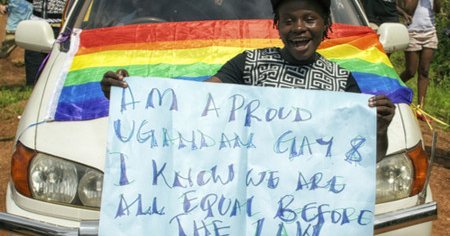 AM A PROUD
UGANDAN GAY &
I KNOW WE ARE
ALL EQUAL BEFORE
THE LAW